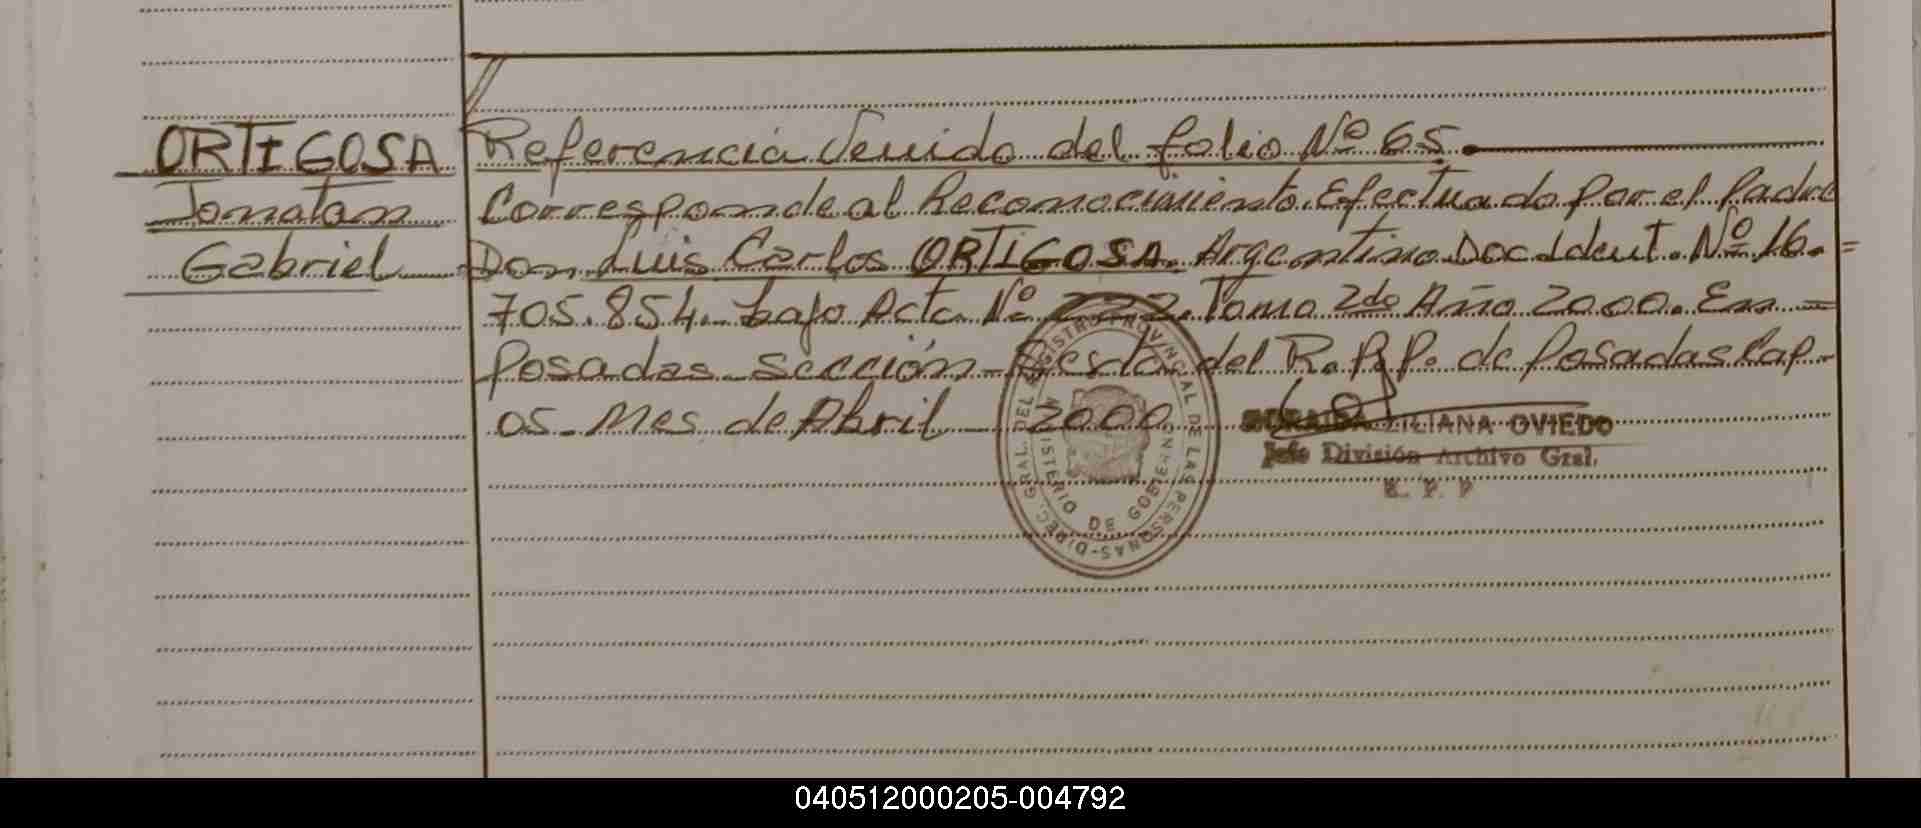 ORTIGOSA
Jonatan
Gabriel
Referencia Venido del folio Nº 65.
Corresponde al Reconocimiento Efectuado por el Padre
Don Luis Carlos ORTIGOSA. Argentino Doc. Ident. Nº 16.=
705.854. bajo Acta Nº 222. Tomo 2do Año 2000. En =
Posadas Sección del R.P.P. de Posadas Cap.
05 - Mes de Abril - 2000
LILIANA OVIEDO
Jefe División Archivo Gral.
R. P. P
DIREC. GRAL. DEL REGISTRO PROVINCIAL DE LAS PERSONAS-
MINISTERIO DE GOBIERNO
040512000205-004792